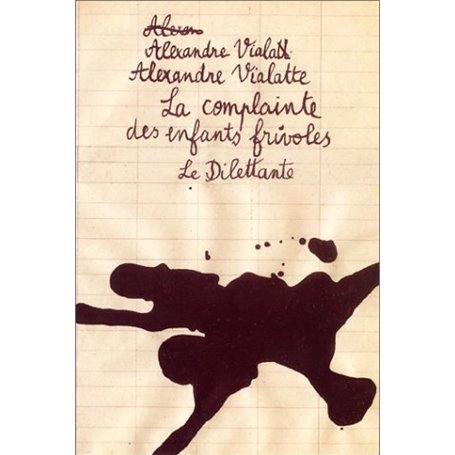 Alexan
Alexandre Vialatt
Alexandre Vialatte
La complainte
des enfants frivoles
Le Dilettante